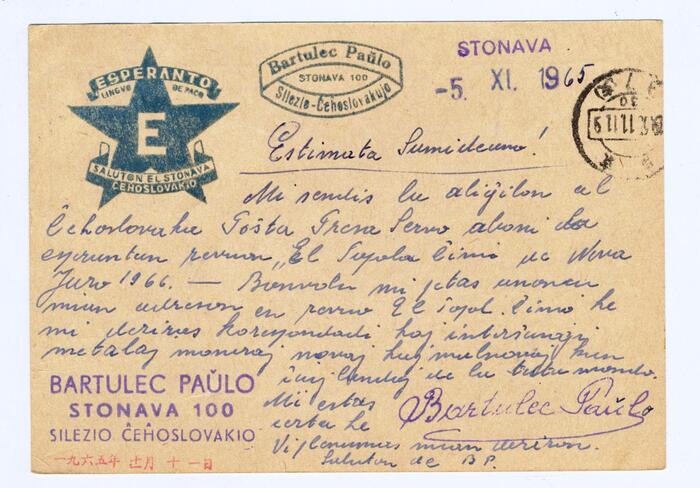 ESPERANTO
LINGVO DE PACO
E
SALUTON EL STONAVA
ĈEHOSLOVAKIO
Bartulec Paŭlo
STONAVA 100
Silezio-Ĉehoslovakujo
STONAVA
-5. XI. 1965
11.11.9
Estimata
Mi sendis la aliĝilon al
Poŝta Servo aboni la
revuon „El Popola Ĉinio de Nova
Jaro 1966. — Bonvolu mi petas
mian adreson en revuo El Popol. Ĉinio ke
mi deziras korespondadi kaj interŝanĝi
metalaj moneraj novaj kaj malnovaj kun
ĉiuj landoj de la tuta mondo.
Mi estas
certa ke
mian deziron.
Saluton de B.P.
Bartulec Paŭlo
BARTULEC PAŬLO
STONAVA 100
SILEZIO ĈEHOSLOVAKIO
一九六五年 十一月 十一日